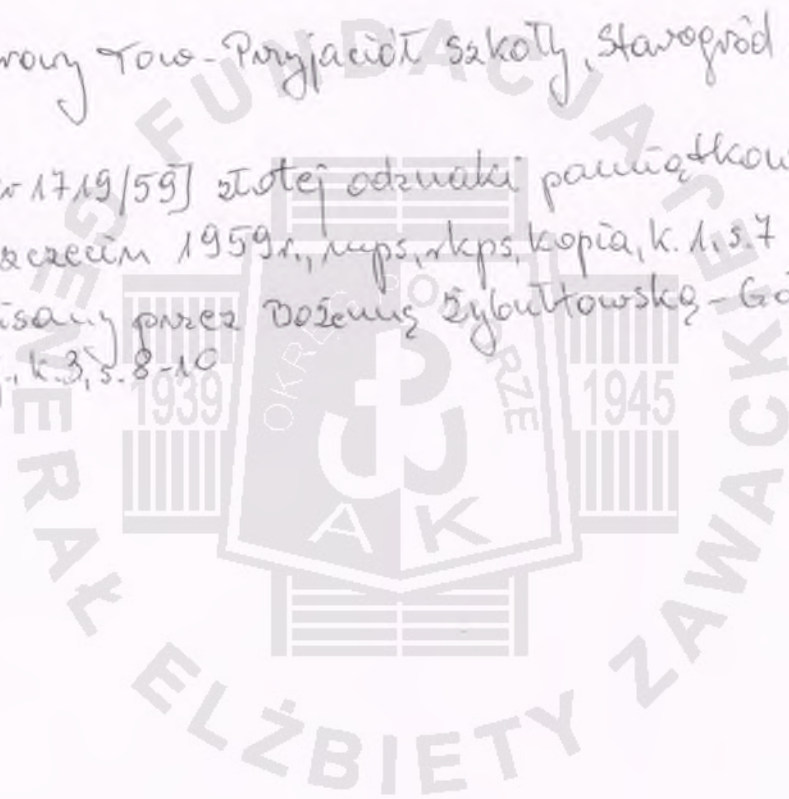 rowy Tow-Przyjaciół Szkoły, Starogród
r 1719/59] złotej odznaki pamiątkow
zczecin 1959r., mps, rkps, kopia, k. 1, s. 7
isany przez Bożennę Zybułtowską-Gó
., k. 3, s. 8-10
FUNDACJA GENERAŁ ELŻBIETY ZAWACKIEJ
OKRĘG POMORZE
1939
1945
AK